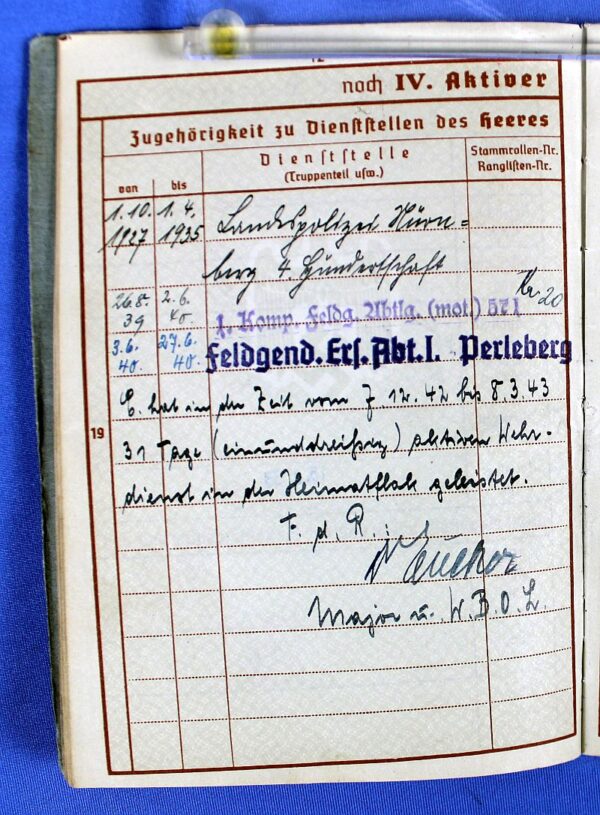 12
noch IV. Aktiver
Zugehörigkeit zu Dienststellen des Heeres
von bis Dienststelle (Truppenteil usw.) Stammrollen-Nr. Ranglisten-Nr.
1.10. 1927 1.4. 1935 Landespolizei Nürn=
berg 4. Hundertschaft
26.8. 39 2.6. 40 1. Komp. Feldg. Abtlg. (mot.) 571 Nr. 20
3.6. 40. 27.6. 40. Feldgend. Ers. Abt. I. Perleberg
19
E. hat in der Zeit vom 7 12. 42 bis 8. 3. 43
31 Tage (einunddreißig) aktiven Wehr-
dienst in der Heimatflak geleistet.
F. d. R.:
Major u. W.B.O.L.